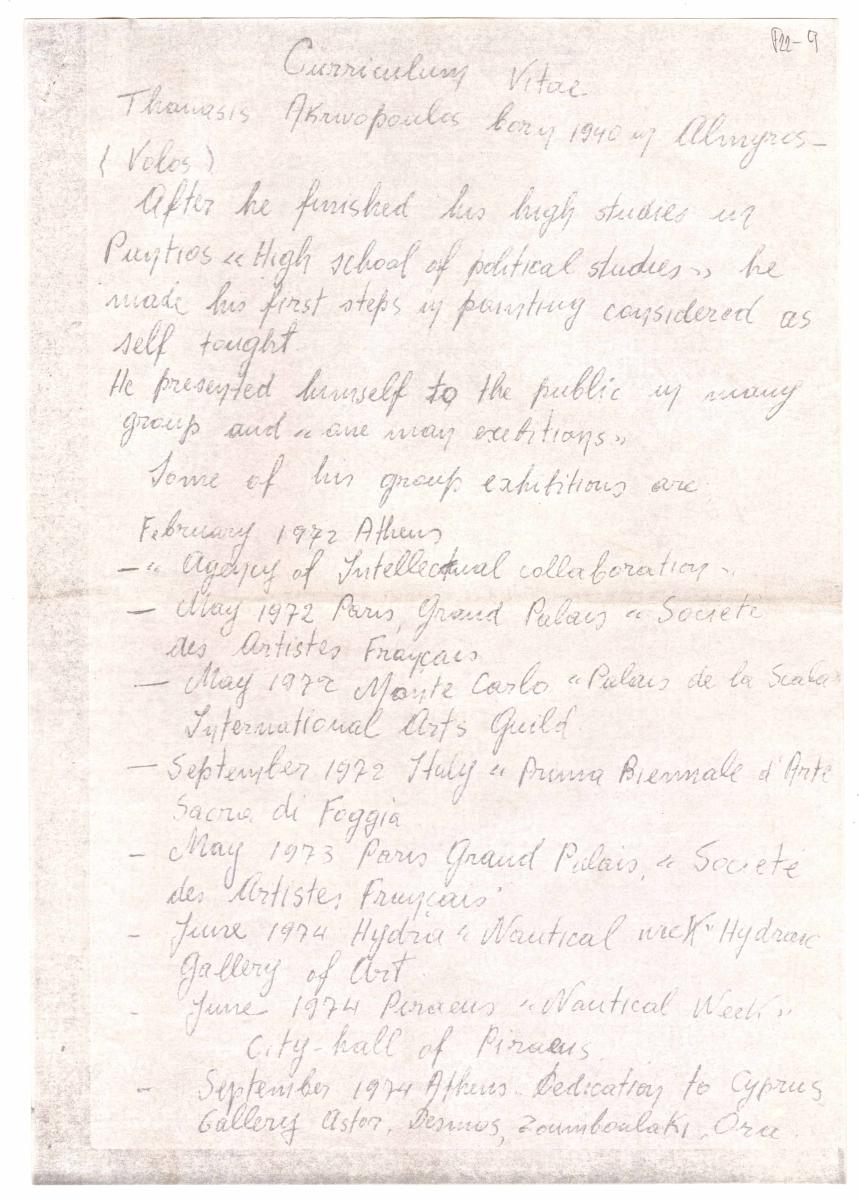 P22-9
Curriculum Vitae
Thanasis Akrivopoulos born 1940 in Almyros-
(Volos)
After he finished his high studies in
"High school of political studies" he
made his first steps in painting considered as
self tought.
He presented himself to the public in many
group and "one man exebitions"
Some of his group exhibitions are
February 1972 Athens
— "Agency of Intellectual collaboration".
— May 1972 Paris, Grand Palais "Societé
des Artistes Français
— May 1972 Monte Carlo "Palais de la Scala
International Arts Guild
— September 1972 Italy "Prima Biennale d'Arte
Sacra di Foggia
- May 1973 Paris Grand Palais, "Societe
des Artistes Français"
- June 1974 Hydria "Nautical week" Hydraic
Gallery of Art.
- June 1974 Piraeus "Nautical Week"
City-hall of Piraeus.
- September 1974 Athens Dedication to Cyprus
Gallery Astor, Desmos, Zoumboulaki, Ora.